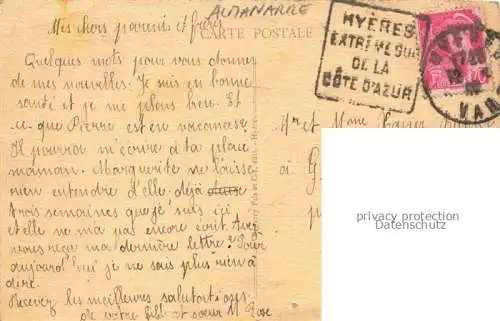 ALMANARRE
Mes chers parents et frères
CARTE POSTALE
Quelques mots pour vous donner
de mes nouvelles. Je suis en bonne
santé et je me plais bien. Et
ce que Pierre est en vacances.
Il pourrai m'écrire à ta place
maman. Marguerite ne laisse
rien entendre d'elle déjà
trois semaines que je suis ici
et elle ne ma pas encore écrit. Avez
vous reçu ma dernière lettre? Pour
aujourd'hui je ne sais plus rien à
dire.
Recevez les meilleures salutations
de votre fille et soeur M Rose
HYÈRES
EXTRÊME SUD
DE LA
CÔTE D'AZUR
HYÈRES
VAR
Mr et Mme Xavier
à G
privacy protection
Datenschutz